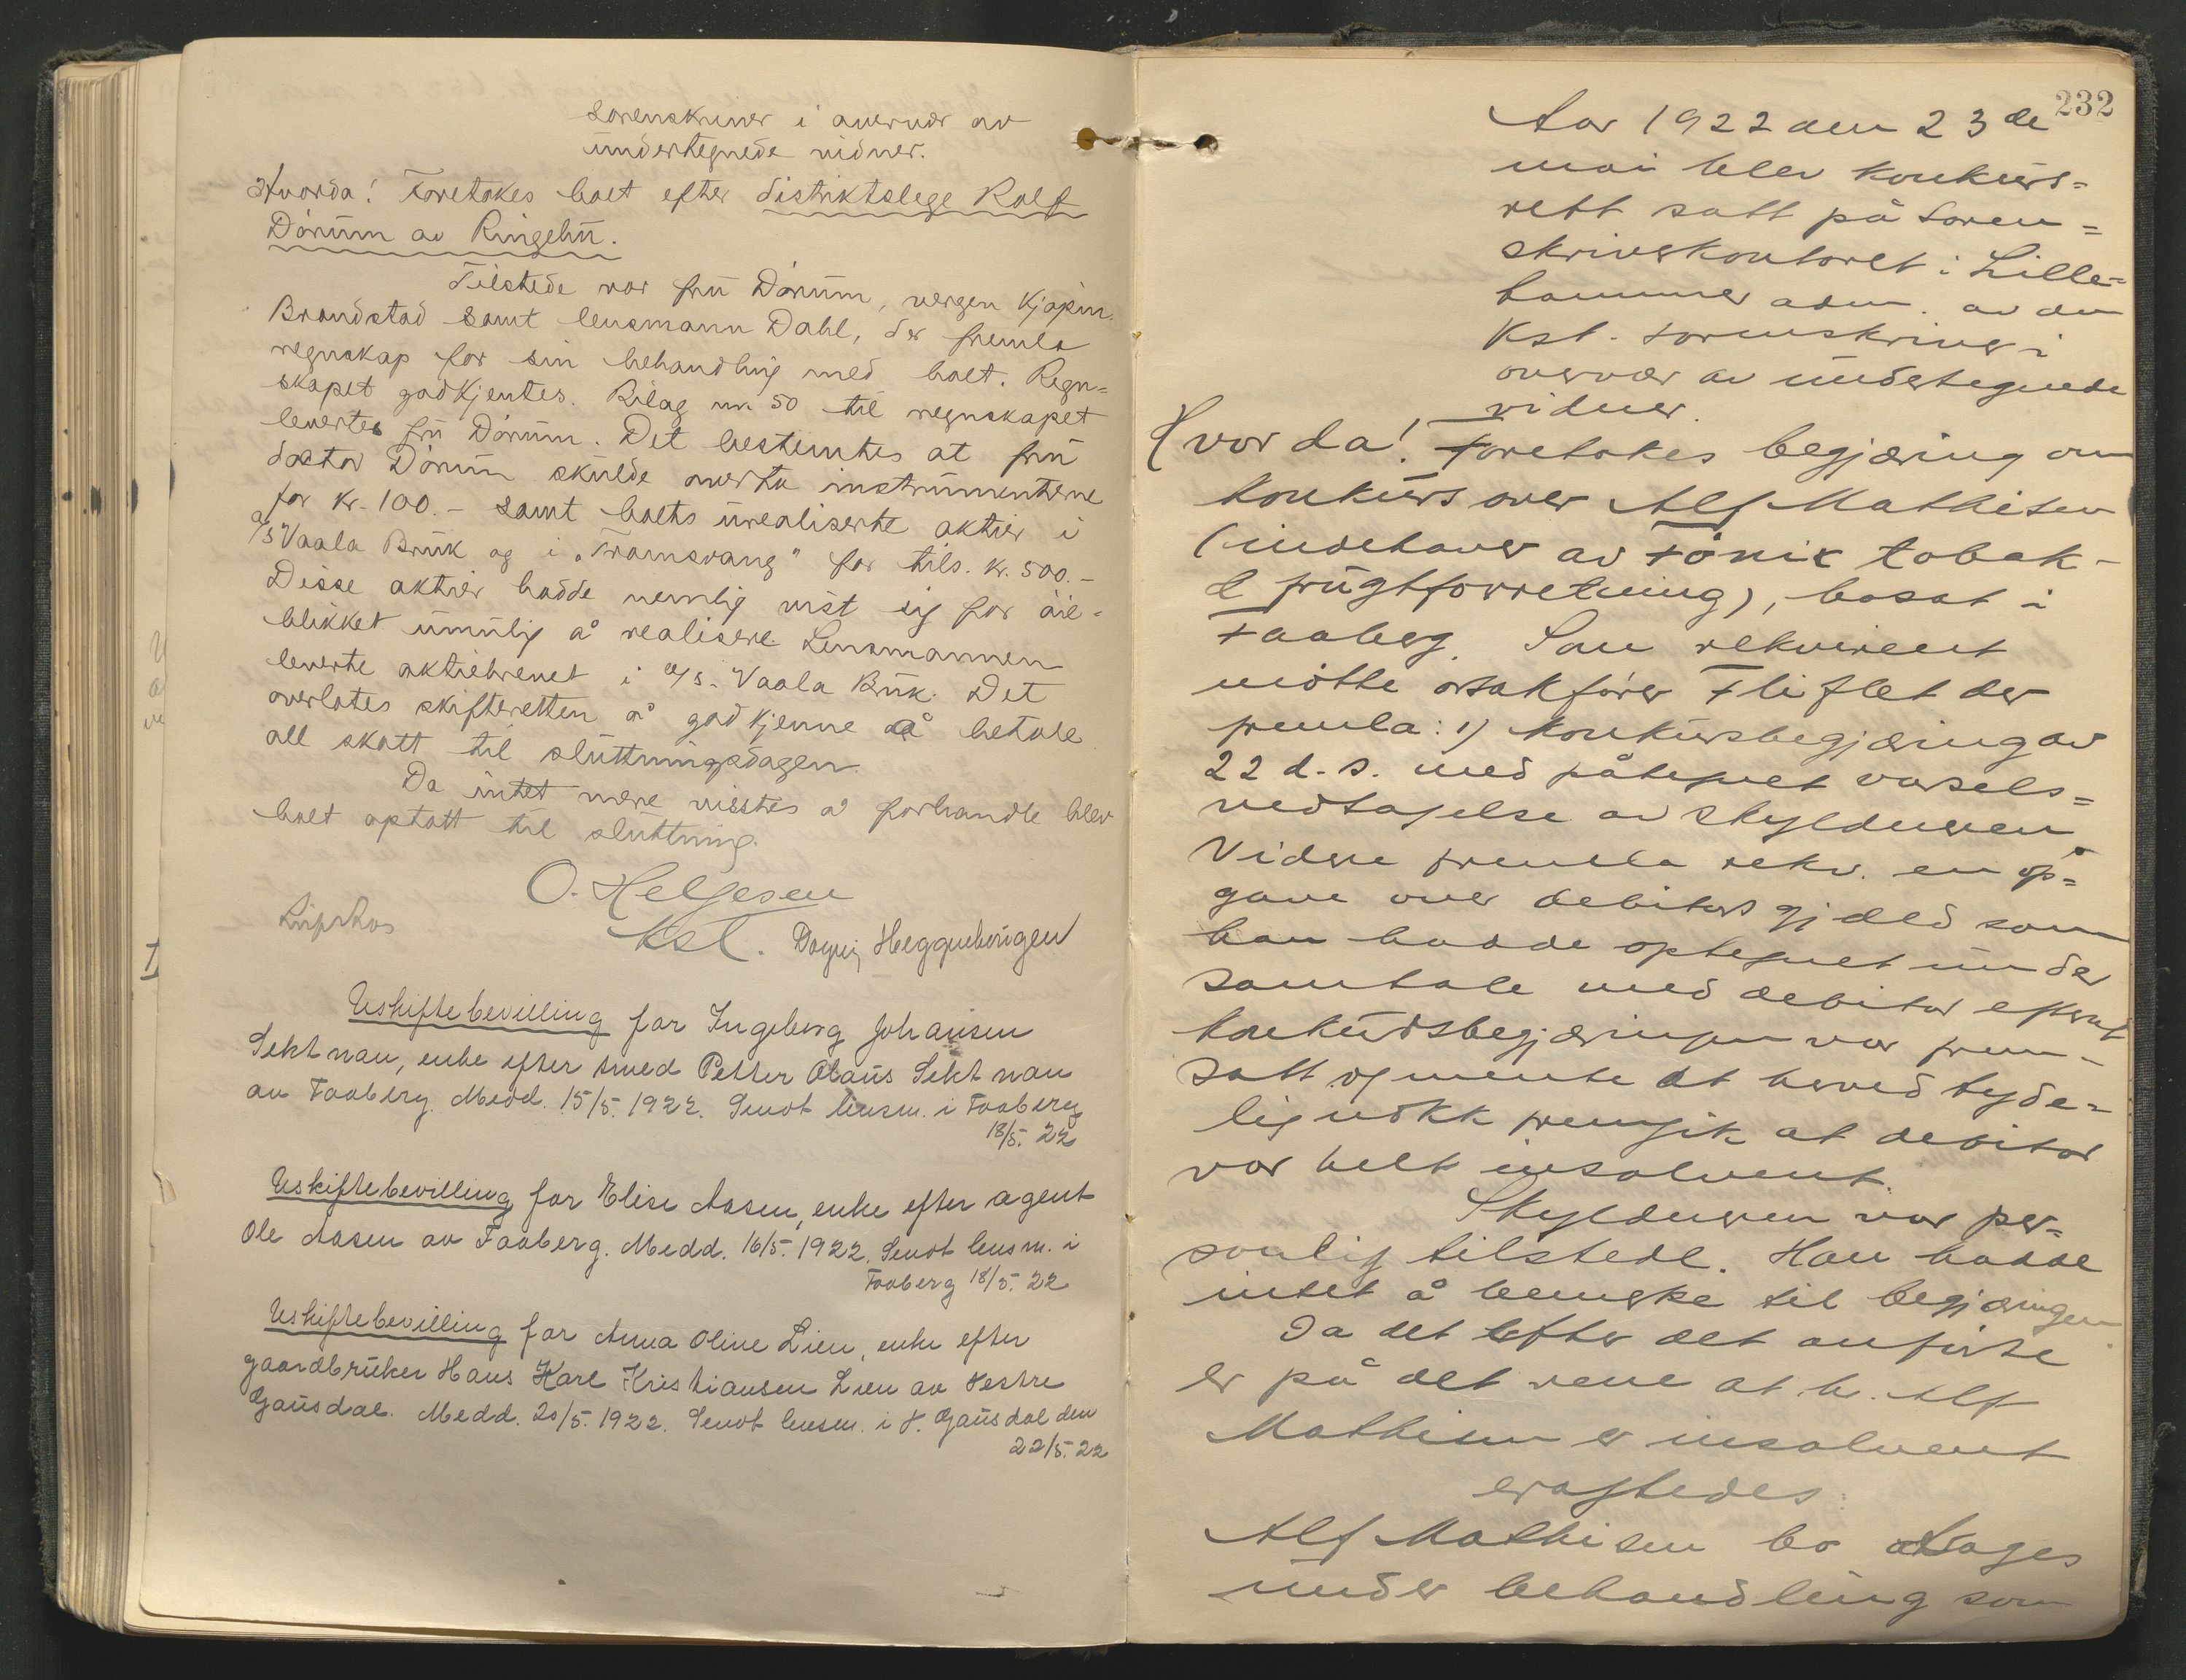 sorenskriver i overvær av
undertegnede vidner.
Hvorda! Foretokes boet efter distriktslege Rolf
Dörum av Ringebu.
Tilstede var fru Dörum, vergen Kjøpm.
Brandstad samt lensmann Dahl, der fremla
regnskap for sin behandling med boet. Regn=
skapet godkjentes. Bilag nr. 50 til regnskapet
levertes fru Dörum. Det bestemtes at fru
doktor Dörum skulde overta instrumentene
for kr. 100.- samt boets urealiserte aktier i
A/S Vaala Bruk og i "Tromsvang" for tils. kr. 500.-
Disse aktier hadde nemlig vist sig for öie-
blikket umulig å realisere. Lensmannen
leverte aktiebrevet i a/s. Vaala Bruk. Det
overlotes skifteretten å godkjenne å betale
all skatt til slutningsdagen.
Da intet mere visstes å forhandle blev
boet optatt til slutning.
O. Helgesen
kst. Heggueberigen
Uskiftebevilling for Ingeborg Johansen
Sektnan, enke efter smed Petter Olaus Sektnan
av Faaberg. Medd. 15/5. 1922. Sendt lensm. i Faaberg
18/5. 22
Uskiftebevilling for Elise Aasen, enke efter agent
Ole Aasen av Faaberg. Medd. 16/5. 1922. Sendt lensm. i
Faaberg 18/5. 22
Uskiftebevilling for Anna Oline Lien, enke efter
gaardbruker Hans Karl Kristiansen Lien av Vestre
Gausdal. Medd. 20/5. 1922. Sendt lensm. i V. Gausdal den
22/5. 22
232
Aar 1922 den 23de
mai blev konkurs=
rett satt på soren=
skriverkontoret i Lille=
hammer adm. av den
Kst. sorenskriver i
overvær av undertegnede
vidner.
Hvor da! Foretokes begjæring om
konkurs over Alf Mathisen
(indehaver av Fönix tobak-
& frugtforretning), bosat i
Faaberg. Som rekvirent
mötte orsakförer Fliflet der
fremla: 1) Konkursbegjæring av
22 d.s. med påtegnet varsels=
vedtagelse av skyldneren
Videre fremla rekv. en op=
gave over debitors gjæld som
han hadde optegnet under
samtale med debitor efterat
konkursbegjæringen var frem-
satt og mente at herved tyde=
lig nokk fremgik at debitor
var helt insolvent.
Skyldneren var per=
sonlig tilstede. Han hadde
intet å bemerke til begjæringen
Da det efter det anförte
er på det rene at h. Alf
Mathisen er insolvent
eragtedes:
Alf Mathisen bo tages
under behandling som